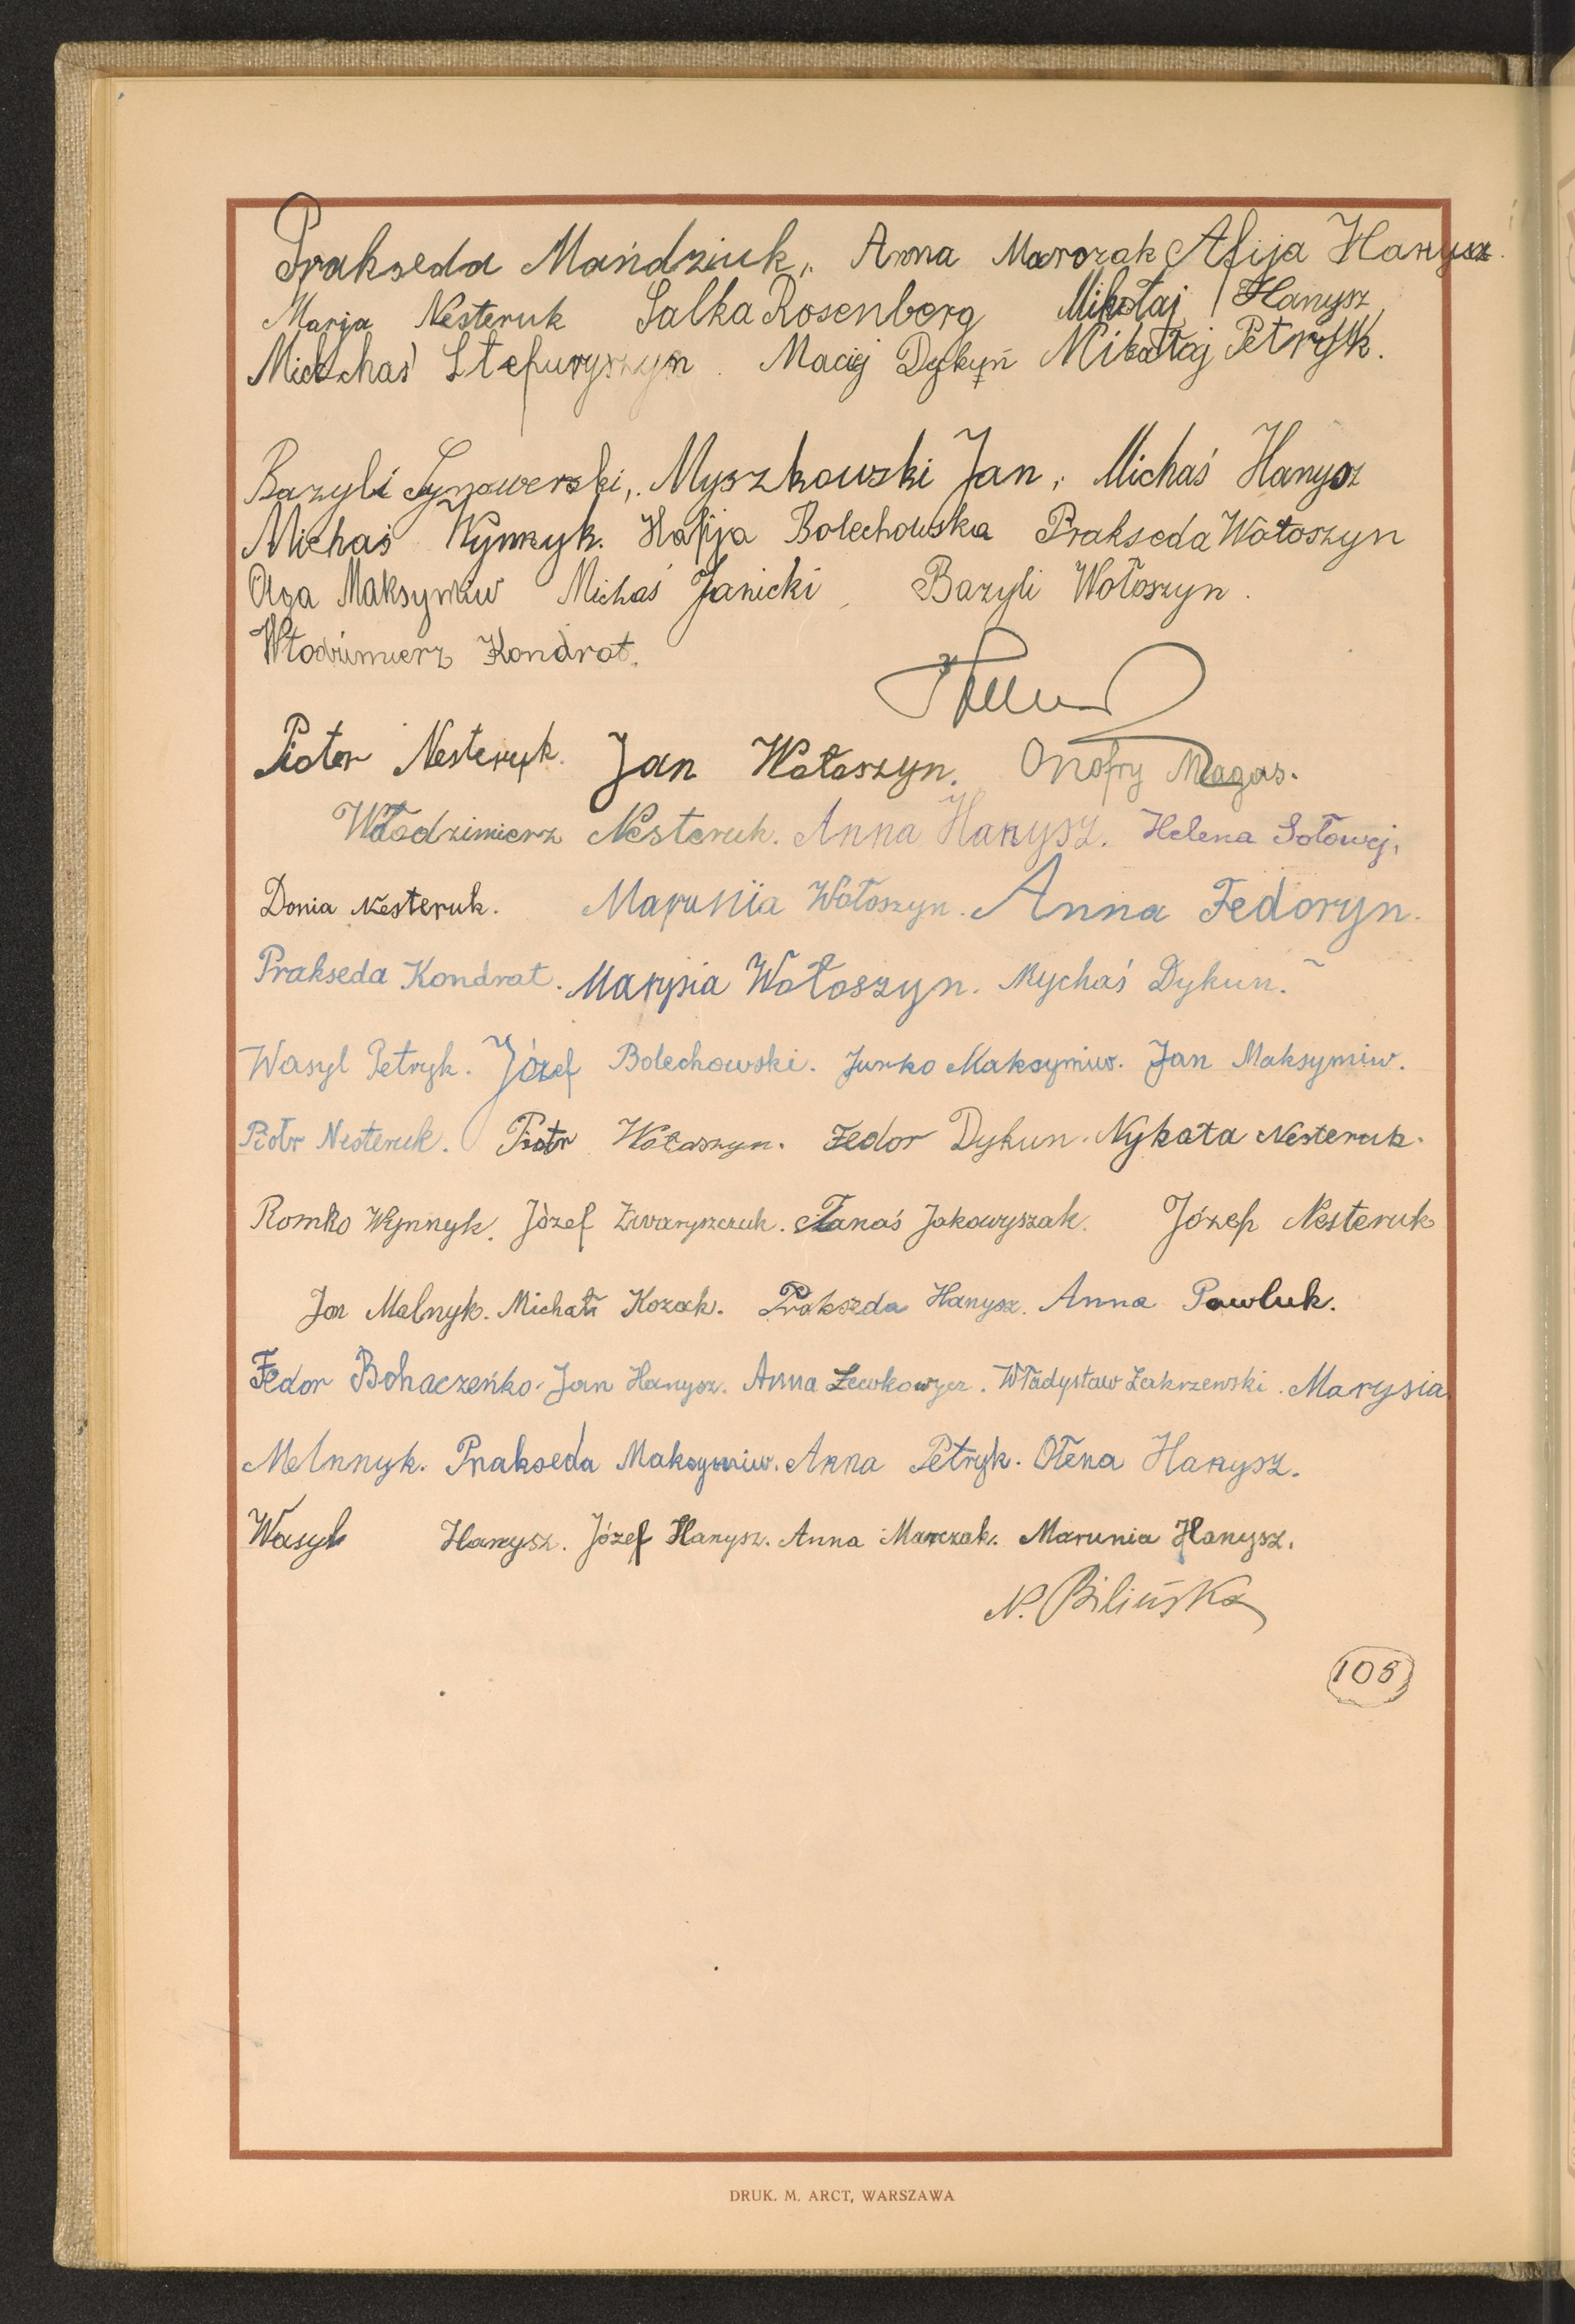 Prakseda Mańdziuk, Anna Marczak Afija Hanysz.
Marja Nesteruk Salka Rosenberg Mikołaj Hanysz
Michaś Stefuryszyn. Maciej Dykyń Mikołaj Petryk.
Bazyli Synowerski, Myszkowski Jan, Michaś Hanysz
Michaś Wynnyk. Hafija Bolechowska Prakseda Wołoszyn
Olga Maksymiw Michaś Janicki, Bazyli Wołoszyn.
Włodzimierz Kondrat.
Piotr Nesteruk. Jan Wołoszyn. Onofry Magas.
Włodzimierz Nesteruk. Anna Hanysz. Helena Sołowej.
Donia Nesteruk. Marunia Wołoszyn. Anna Fedoryn.
Prakseda Kondrat. Marysia Wołoszyn. Mychaś Dykun.
Wasyl Petryk. Józef Bolechowski. Jurko Maksymiw. Jan Maksymiw.
Piotr Nesteruk. Piotr Wołoszyn. Fedor Dykun. Nykoła Nesteruk.
Romko Wynnyk. Józef Zwaryszczuk. Tanaś Jakowyszak. Józef Nesteruk
Jan Melnyk. Michał Kozak. Prakseda Hanysz. Anna Pawluk.
Fedor Bohaczeńko. Jan Hanysz. Anna Lewkowycz. Władysław Zakrzewski. Marysia
Melnnyk. Prakseda Maksymiw. Anna Petryk. Ołena Hanysz.
Wasyl Hanysz. Józef Hanysz. Anna Marczak. Marunia Hanysz.
N. Bilińska
105
DRUK. M. ARCT, WARSZAWA